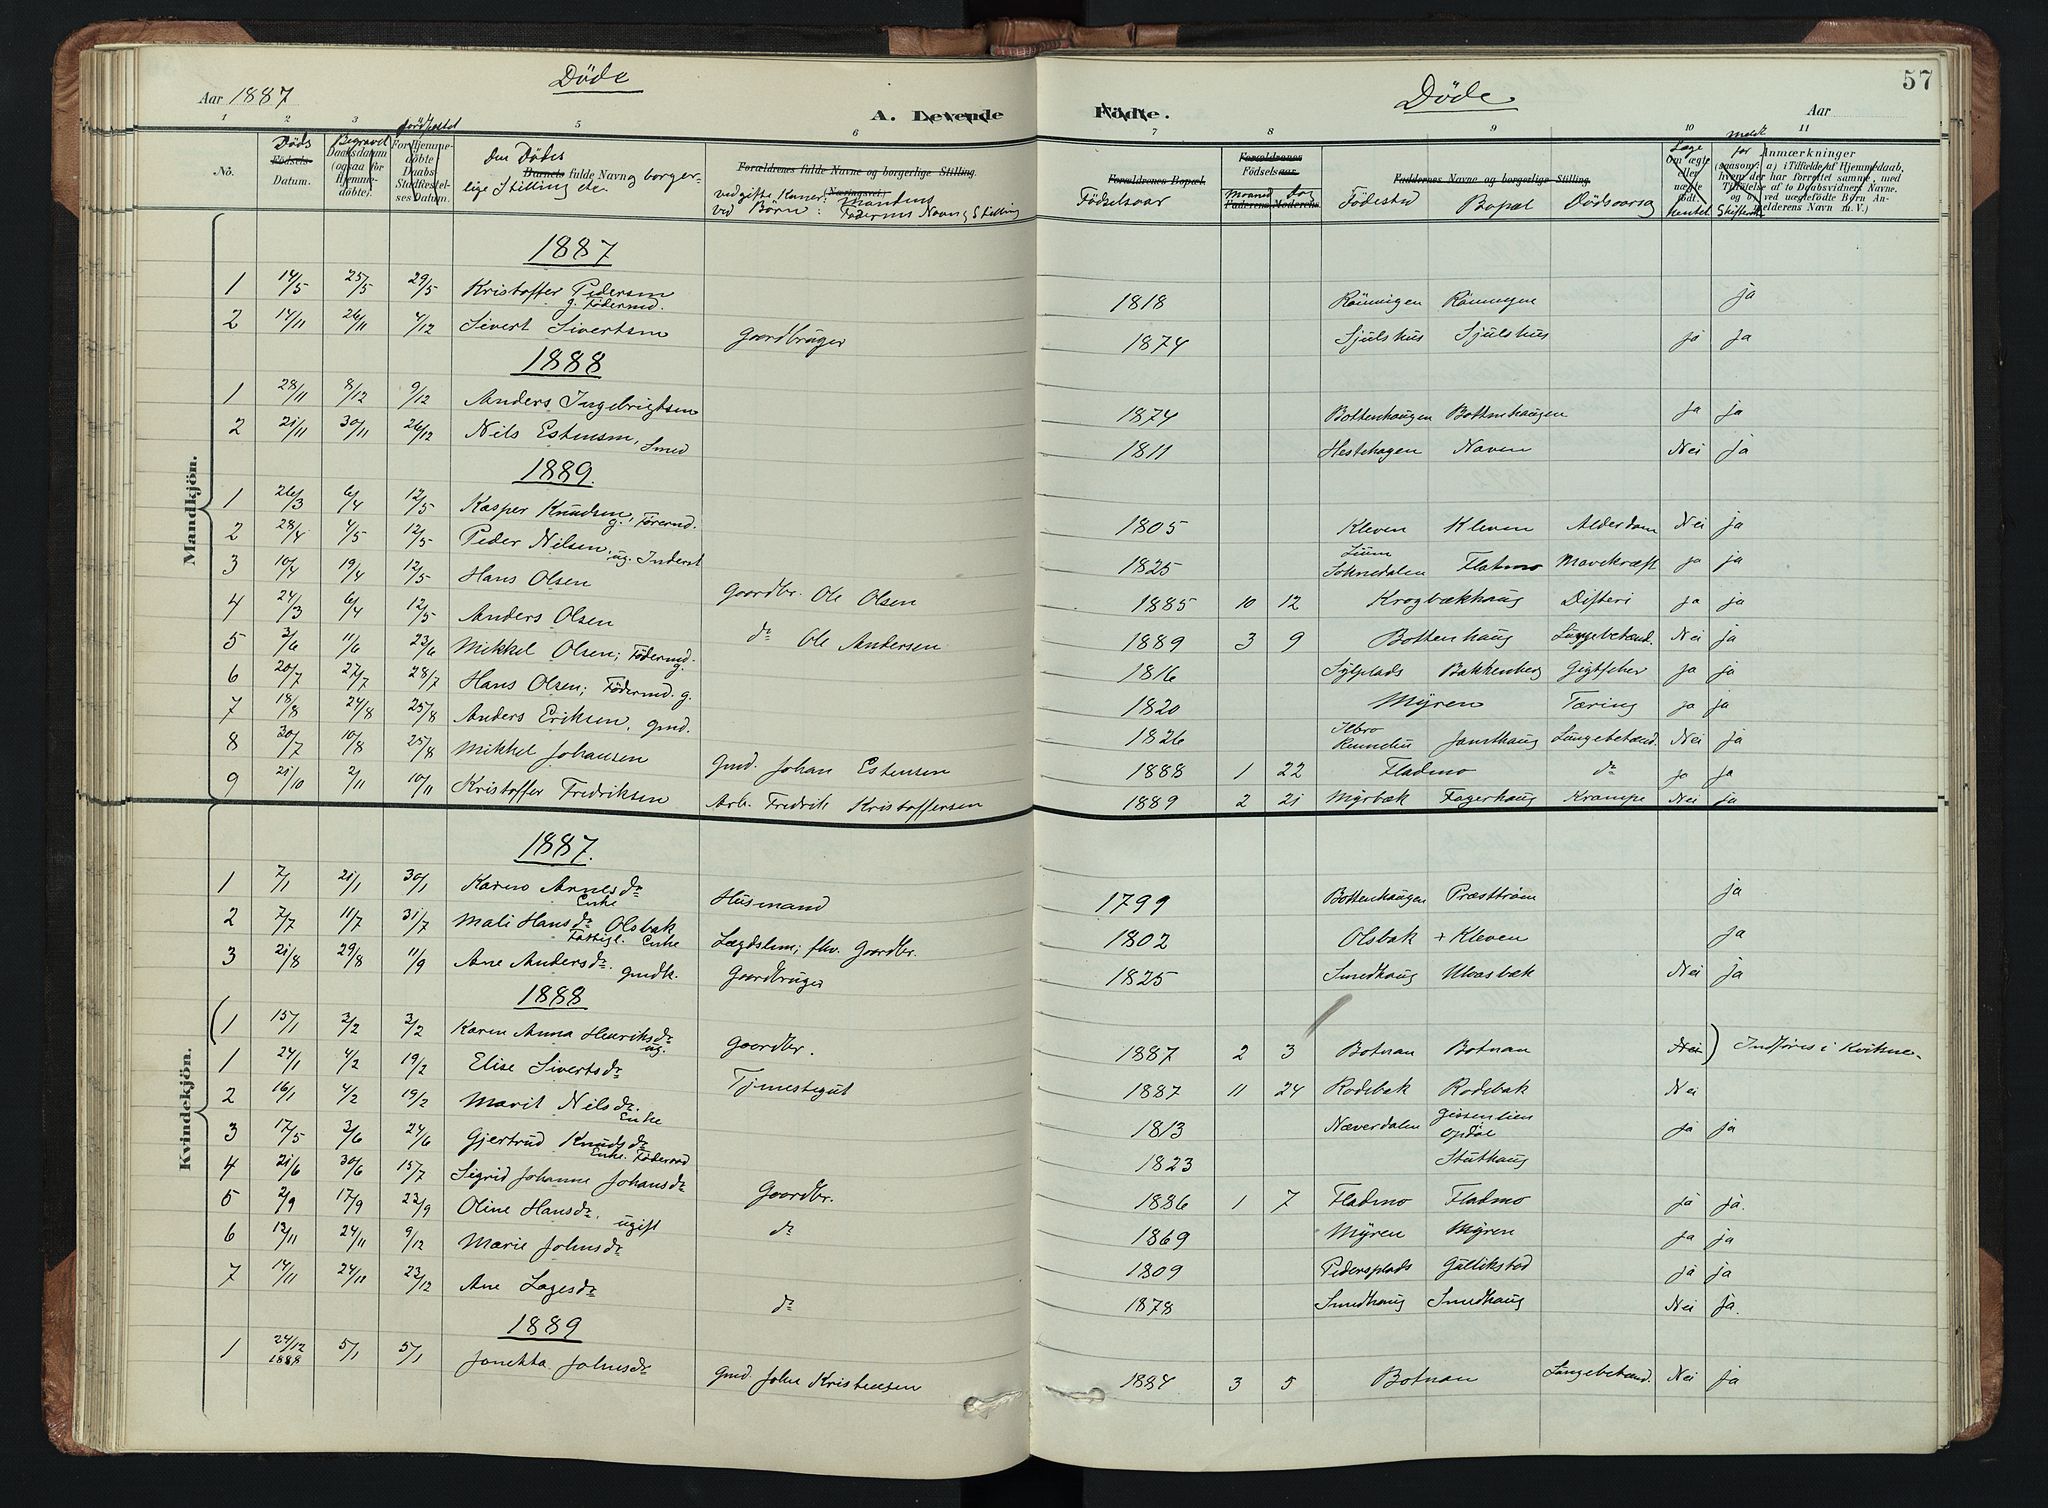 57
Aar 1887 Döde A. Levende Födte. Döde Aar
1 2 3 5 6 7 8 9 10 11
No. Döds Födsels-Datum. Begravet Daabsdatum (ogsaa for Hjemmedöbte) Jordfæstet For Hjemmedöbte Daabs Stadfestelses Datum. Den Dödes Barnets fulde Navn og borgerlige Stilling Forældrenes fulde Navne og borgerlige Stilling. (Næringsvei) ved gifte Koner: Mandens ved Börn: Faderens Navn & Stilling Forældrenes Bopæl. Födselsaar Forældrenes Födselsaar Maaned Faderens Dag Moderens Faddernes Navne og borgerlige Stilling. Födested Bopæl Dödsaarsag Læge hentet Om ægte eller uægte födt. meldt for Skifteret Anmærkninger (saasom: a) i Tilfælde af Hjemmedaab, hvem der har forrettet samme, med Tilföielse af to Daabsvidners Navne. og b) ved uægtefödte Börn Anmelderens Navn m. V.)
Mandkjön.
1887
1 14/5 25/5 29/5 Kristoffer Pedersen g. Föderaad. 1818 Rönningen Rönningen ja
2 14/11 26/11 4/12 Sivert Sivertsen Gaardbruger 1874 Sjulshus Sjulshus ja ja
1888
1 28/11 8/12 9/12 Anders Ingebrigtsen 1874 Bottenhaugen Bottenhaugen ja ja
2 21/11 30/11 26/12 Nils Estensen, Smed 1811 Hestehagen Naven Nei ja
1889.
1 26/3 6/4 12/5 Kasper Knudsen g. 1805 Kleven Kleven Alderdom Nei ja
2 28/4 4/5 12/5 Peder Nilsen, ug. Inderst 1825 Soknedalen Flatmo Mavekræft ja ja
3 10/4 19/4 12/5 Hans Olsen Gaardbr. Ole Olsen 1885 10 12 Krogbækhaug Difteri ja ja
4 24/3 6/4 12/5 Anders Olsen do Ole Andersen 1889 3 9 Bottenhaug Lungebetænd. Nei ja
5 3/6 11/6 23/6 Mikkel Olsen; Föderaad. g. 1816 Sylplads Bakkenberg Gigtfeber ja ja
6 20/7 27/7 28/7 Hans Olsen; Föderaad. g. 1820 Myren Tæring ja ja
7 18/8 24/8 25/8 Anders Eriksen, gmd. 1826 Ilbro Rennebu Jamthaug Lungebetænd. Nei ja
8 30/7 10/8 25/8 Mikkel Johansen Gmd. Johan Estensen 1888 1 22 Fladmo do ja ja
9 21/10 2/11 10/11 Kristoffer Fredriksen Arb. Fredrik Kristoffersen 1889 2 21 Myrbæk Fagerhaug Krampe Nei ja
Kvindekjön.
1887.
1 7/1 21/1 30/1 Karen Arnesdr Enke Husmand 1799 Bottenhaugen Præsttrøen ja
2 7/7 11/7 31/7 Mali Hansdr Olsbak Fattigl. Enke Lægdslem; fhv. Gaardbr. 1802 Olsbak + Kleven ja
3 21/8 29/8 11/9 Ane Andersdr. gmdk. Gaardbruger 1825 Smedhaug Ulvasbæk Nei ja
1888
(1 15/1 3/2 3/2 Karen Anna Henriksdr ug. Gaardbr. 1887 2 3 Botnan Botnan Nei) Indföres i Kvikne.
1 24/1 4/2 19/2 Elise Sivertsdr Tjenestegut 1887 11 24 Rodebak Rodebak Nei
2 16/1 4/2 19/2 Marit Nilsdr. Enke 1813 Næverdalen Gissenlien Opdal ja ja
3 17/5 3/6 24/6 Gjertrud Knudsdr Enke. Föderaad 1823 Stuthaug
4 21/6 30/6 15/7 Sigrid Johanne Johansdr Gaardbr. 1886 1 7 Fladmo Fladmo ja ja.
5 2/9 17/9 23/9 Oline Hansdr. ugift do 1869 Myren Myren ja ja
6 13/11 24/11 9/12 Marie Johnsdr 1809 Pedersplads Gullikstad ja ja
7 14/11 24/11 23/12 Ane Lagesdr do 1878 Smedhaug Smedhaug Nei ja.
1889
1 24/12 1888 5/1 5/1 Jonetta Johnsdr Gmd. John Kristensen 1884 3 5 Botnan Lungebetænd. Nei ja